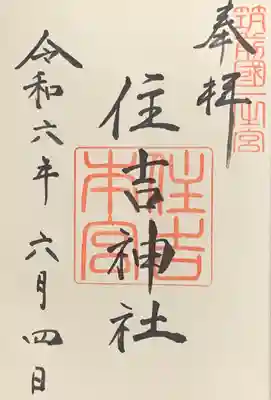 筑前國一之宮
奉拝
住吉神社
住吉本宮
令和六年 六月四日